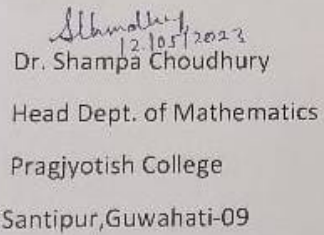 12/05/2023
Dr. Shampa Choudhury
Head Dept. of Mathematics
Pragjyotish College
Santipur,Guwahati-09